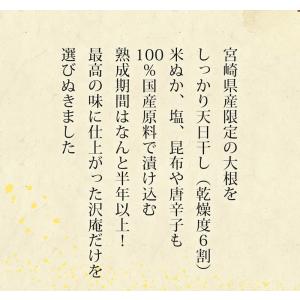 宮崎県産限定の大根を
しっかり天日干し（乾燥度６割）
米ぬか、塩、昆布や唐辛子も
100％国産原料で漬け込む
熟成期間はなんと半年以上！
最高の味に仕上がった沢庵だけを
選びぬきました